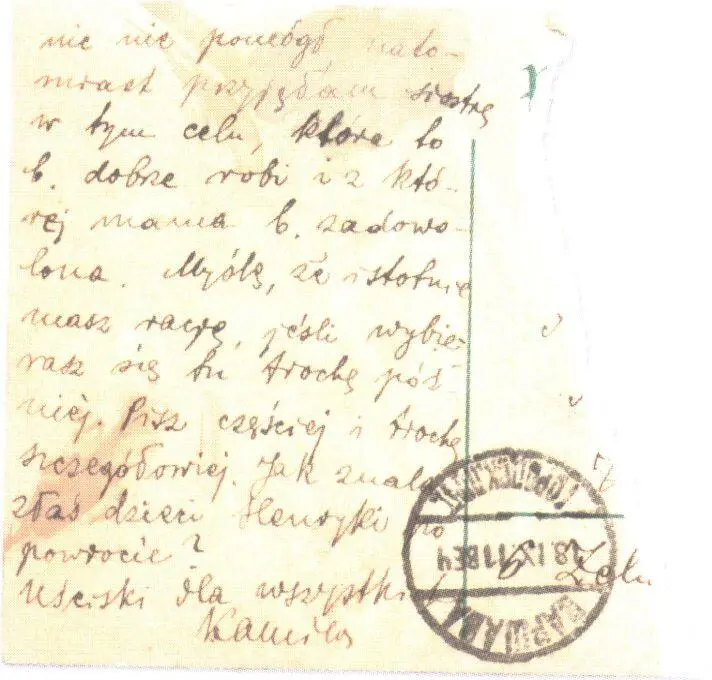 nic nie pomógł nato-
miast przyjęłam siostrę
w tym celu, która to
b. dobrze robi i z któ-
rej mama b. zadowo-
lona. Myślę, że istotnie
masz rację, jeśli wybie-
rasz się tu trochę póź-
niej. Pisz częściej i trochę
szczegółowiej. Jak znala
złaś dzieci Henryki po
powrocie?
Uściski dla wszystkich
Kamila
WARSZAWA